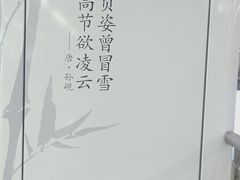 贞姿曾冒雪
高节欲凌云
——唐·孙岘